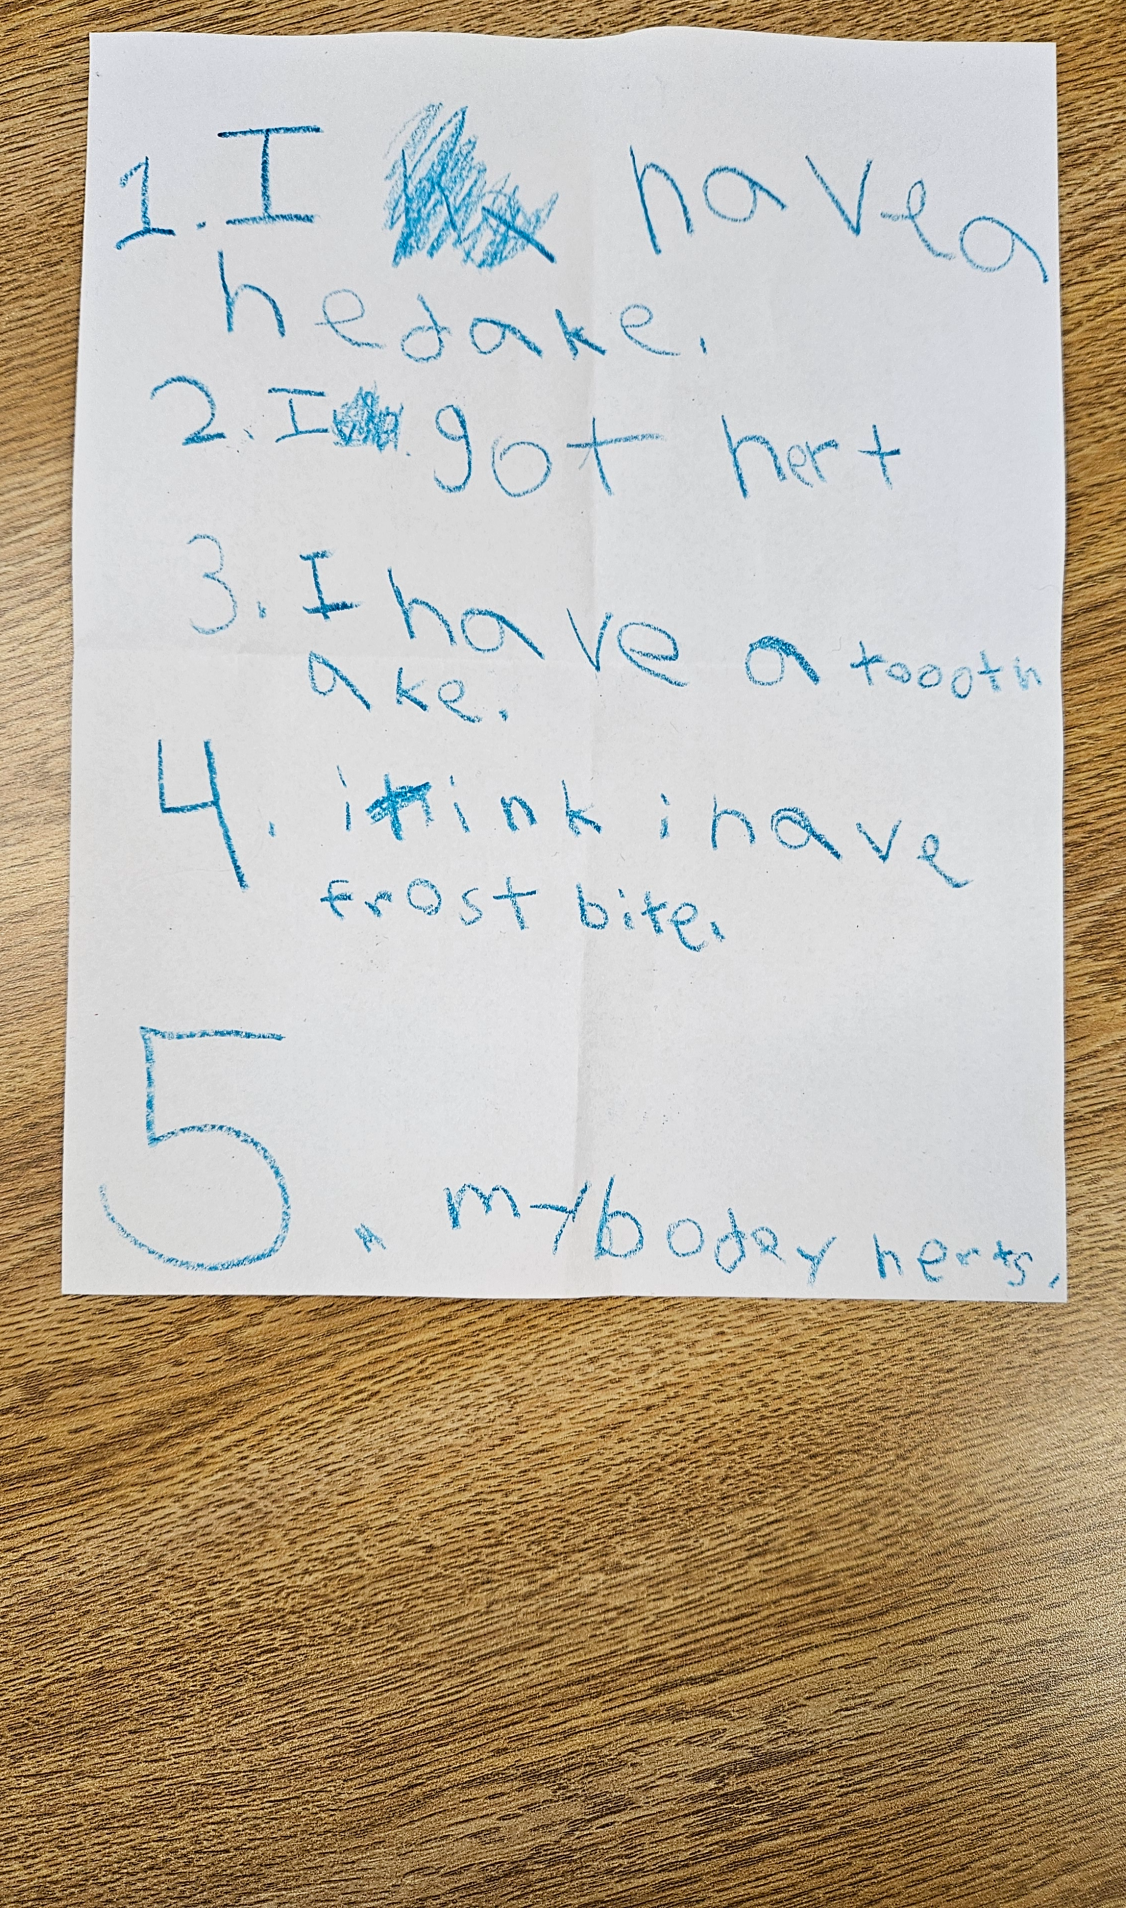 1. I have a
hedake.
2. I got hert
3. I have a toooth
ake.
4. i think i have
frost bite.
5. my bodey herts.